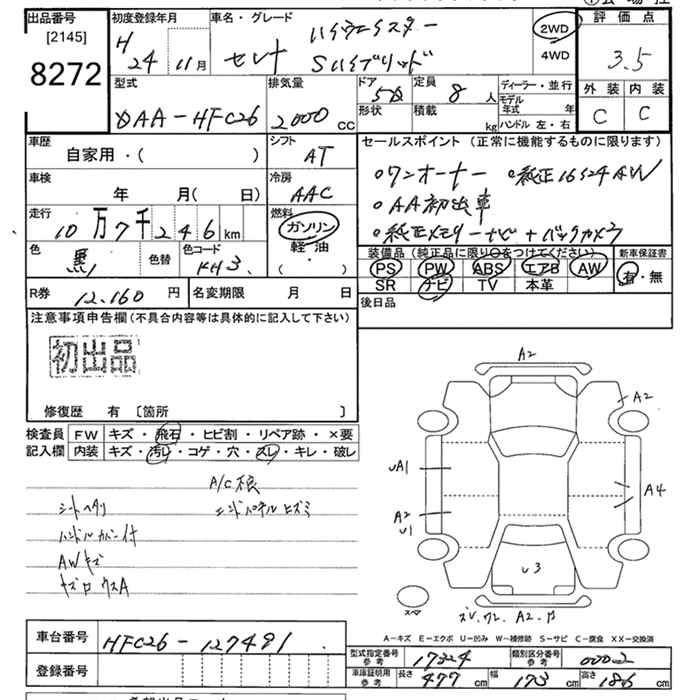 出品番号
[2145]
8272
初度登録年月
H 24 11月
車名・グレード
ハイウェイスター
セレナ Sハイブリッド
2WD
4WD
評価点
3.5
外装 内装
C C
型式
DAA-HFC26
排気量
2000 cc
ドア 5
形状
定員 8 人
積載 kg
ディーラー・並行
モデル年式 年
ハンドル 左・右
車歴
自家用・( )
シフト
AT
セールスポイント (正常に機能するものに限ります)
○ワンオーナー ○純正16インチAW
○AA初出車
○純正メモリーナビ+バックカメラ
車検
年 月( 日)
冷房
AAC
走行
10万7千246km
燃料
ガソリン
軽・油
・( )
色
黒
色替
色コード
KH3
装備品 (純正品に限り○をつけてください)
PS PW ABS エアB AW
SR ナビ TV 本革
新車保証書
有・無
R券 12,160 円
名変期限 月 日
後日品
注意事項申告欄(不具合内容等は具体的に記入して下さい)
初出品
修復歴 有 〔箇所 〕
検査員
記入欄
FW キズ・飛石・ヒビ割・リペア跡・×要
内装 キズ・汚レ・コゲ・穴・スレ・キレ・破レ
A/C根
シートヘタリ
エンドパネルヒズミ
ハンドルカバー付
AWキズ
A2
A2
UA1
A4
A2
U1
U3
スペ
A-キズ E-エクボ U-凹み W-補修跡 S-サビ C-腐食 XX-交換済
車台番号 HFC26-127491
登録番号
型式指定番号
参考
17324
類別区分番号
参考
0002
車庫証明用
参考
長さ 477 cm 幅 173 cm 高さ 186 cm